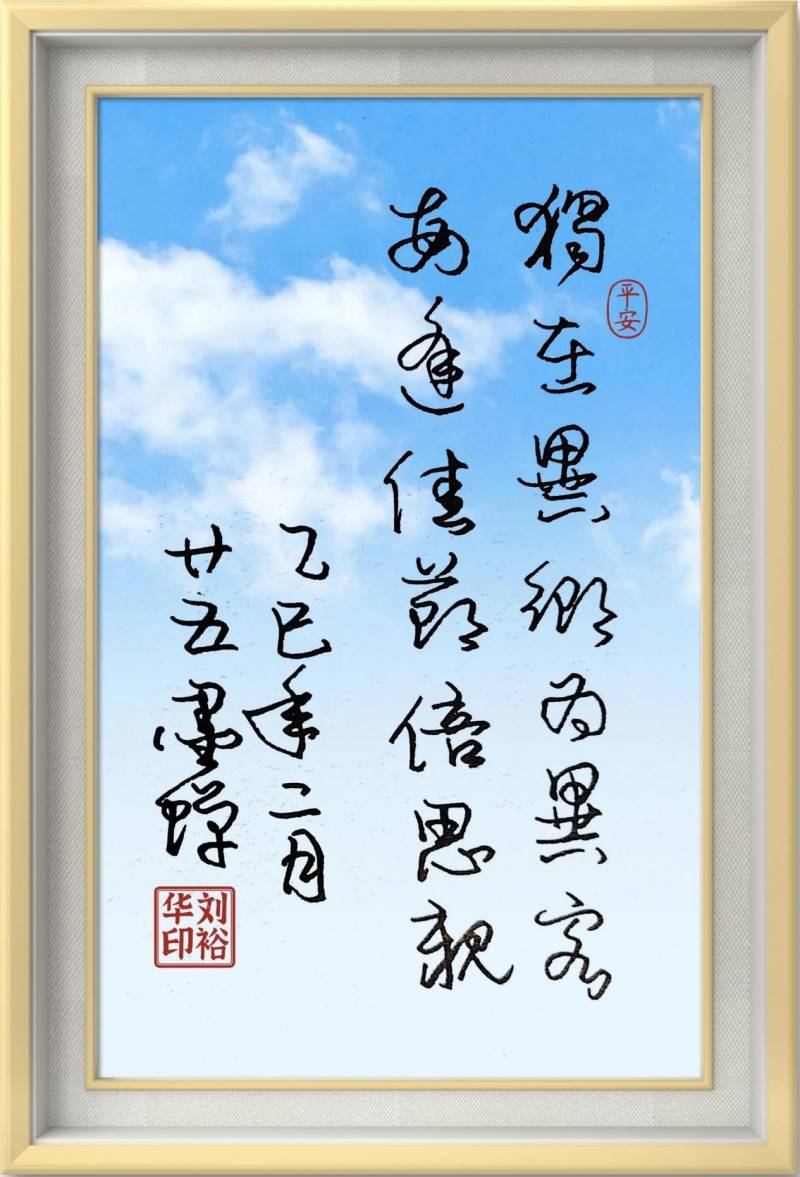 獨在異鄉为異客
平安
每逢佳節倍思親
乙巳年二月
廿五墨蟬
刘裕华印